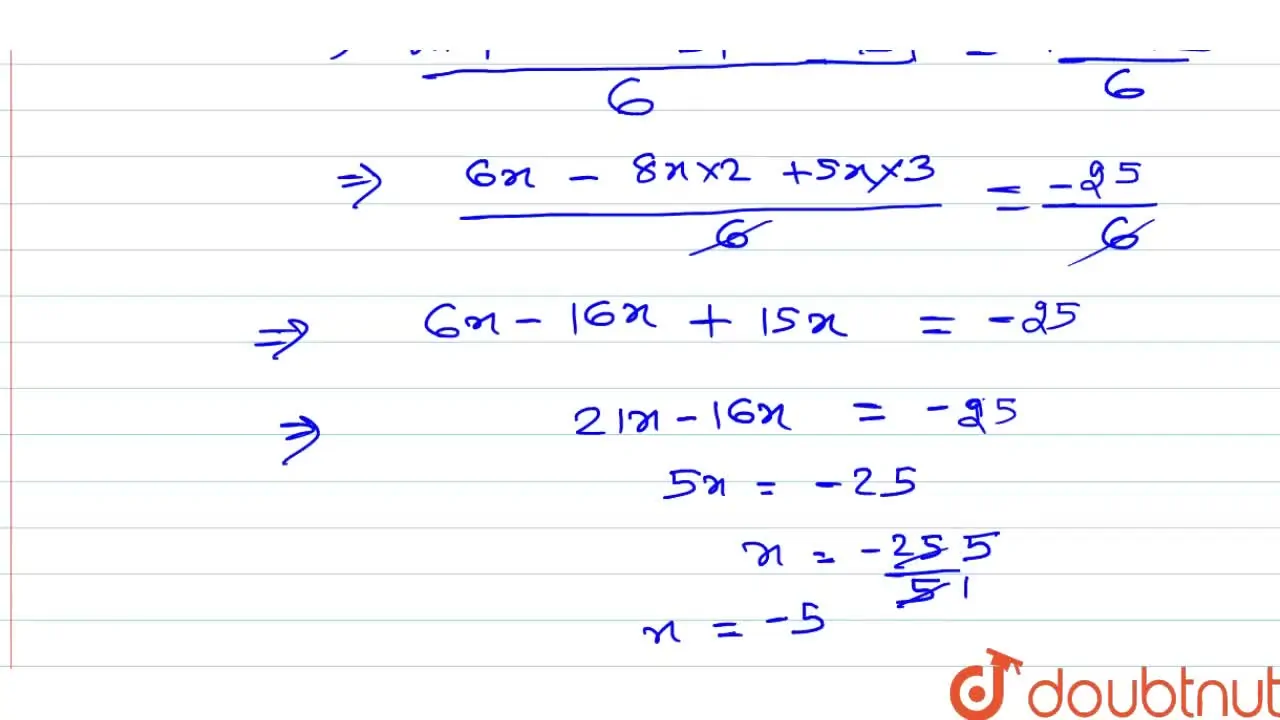 6 6
⇒ 6x - 8x×2 +5x×3 = -25
6 6
⇒ 6x - 16x + 15x = -25
⇒ 21x - 16x = -25
5x = -25
x = -25 5
5 1
x = -5
doubtnut